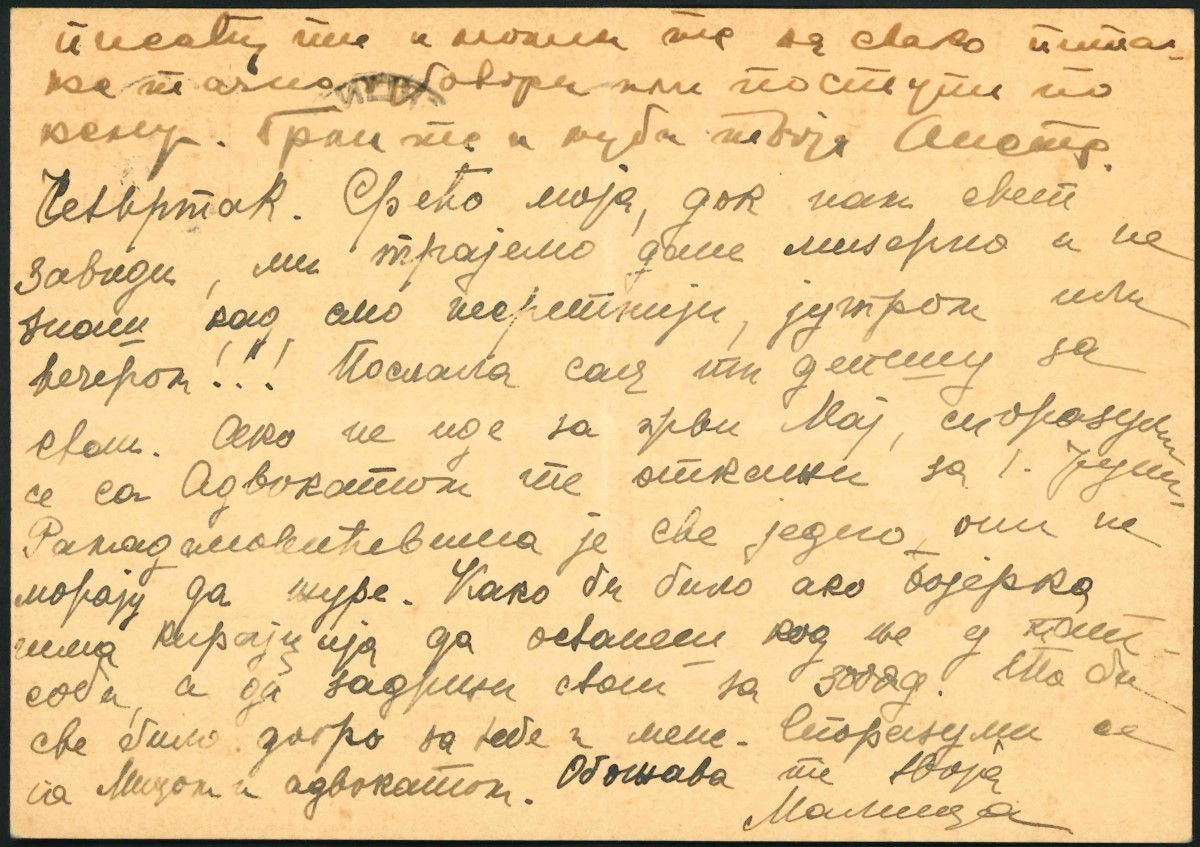 писаћу ти и молим те на свако пита-
ње тачно одговори или поступи по
њему. Грли те и љуби твоја
Четвртак. Срећо моја, док нам свет
завиди, ми трајемо дане мизерно и не
знам кад смо несретнији, јутром или
вечером!!! Послала сам ти депешу за
стан. Ако не иде за први Мај, споразуми
се са Адвокатом те откажи за 1. Јуни,
је све једно, они не
морају да журе. Како би било ако Бојерка
нема кирајџија да останеш код ње у
соби, а да задржи стан за зобад. То би
све било добро за тебе и мене. Споразуми се
са Мицом и адвокатом. Обожава те твоја
Малица